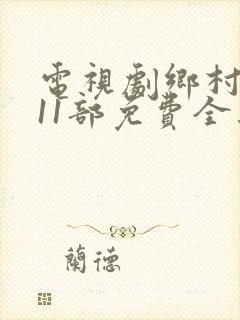 電視劇鄉村
11部免費全
蘭德